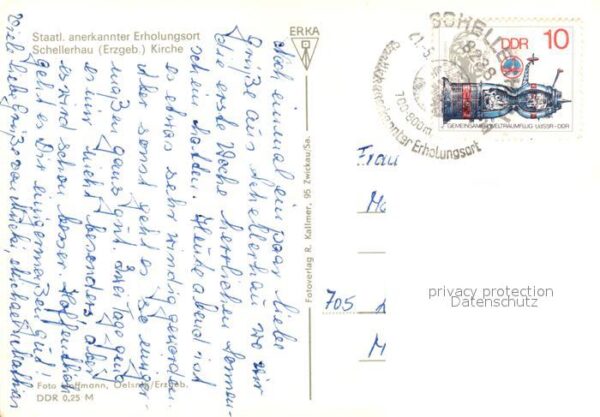 Staatl. anerkannter Erholungsort
Schellerhau (Erzgeb.) Kirche
ERKA
Noch einmal ein paar liebe
Grüße aus Schellerhau wo wir
die erste Woche herrlichen Sonnen-
schein hatten. Heute abend ist
es etwas sehr windig geworden.
Aber sonst geht es so einiger-
maßen ganz gut. Drei Tage ging
es mir nicht besonders, aber
es wird schon besser. Hoffentlich
geht es Dir einigermaßen gut!
Viele liebe Grüße von
Foto Hoffmann, Oelsnitz/Erzgeb.
DDR 0,25 M
Fotoverlag R. Kallmer, 95 Zwickau/Sa.
SCHELLERHAU
700-800m
Staatl. anerkannter Erholungsort
DDR 10
GEMEINSAMER WELTRAUMFLUG UdSSR-DDR
Frau
705
privacy protection
Datenschutz